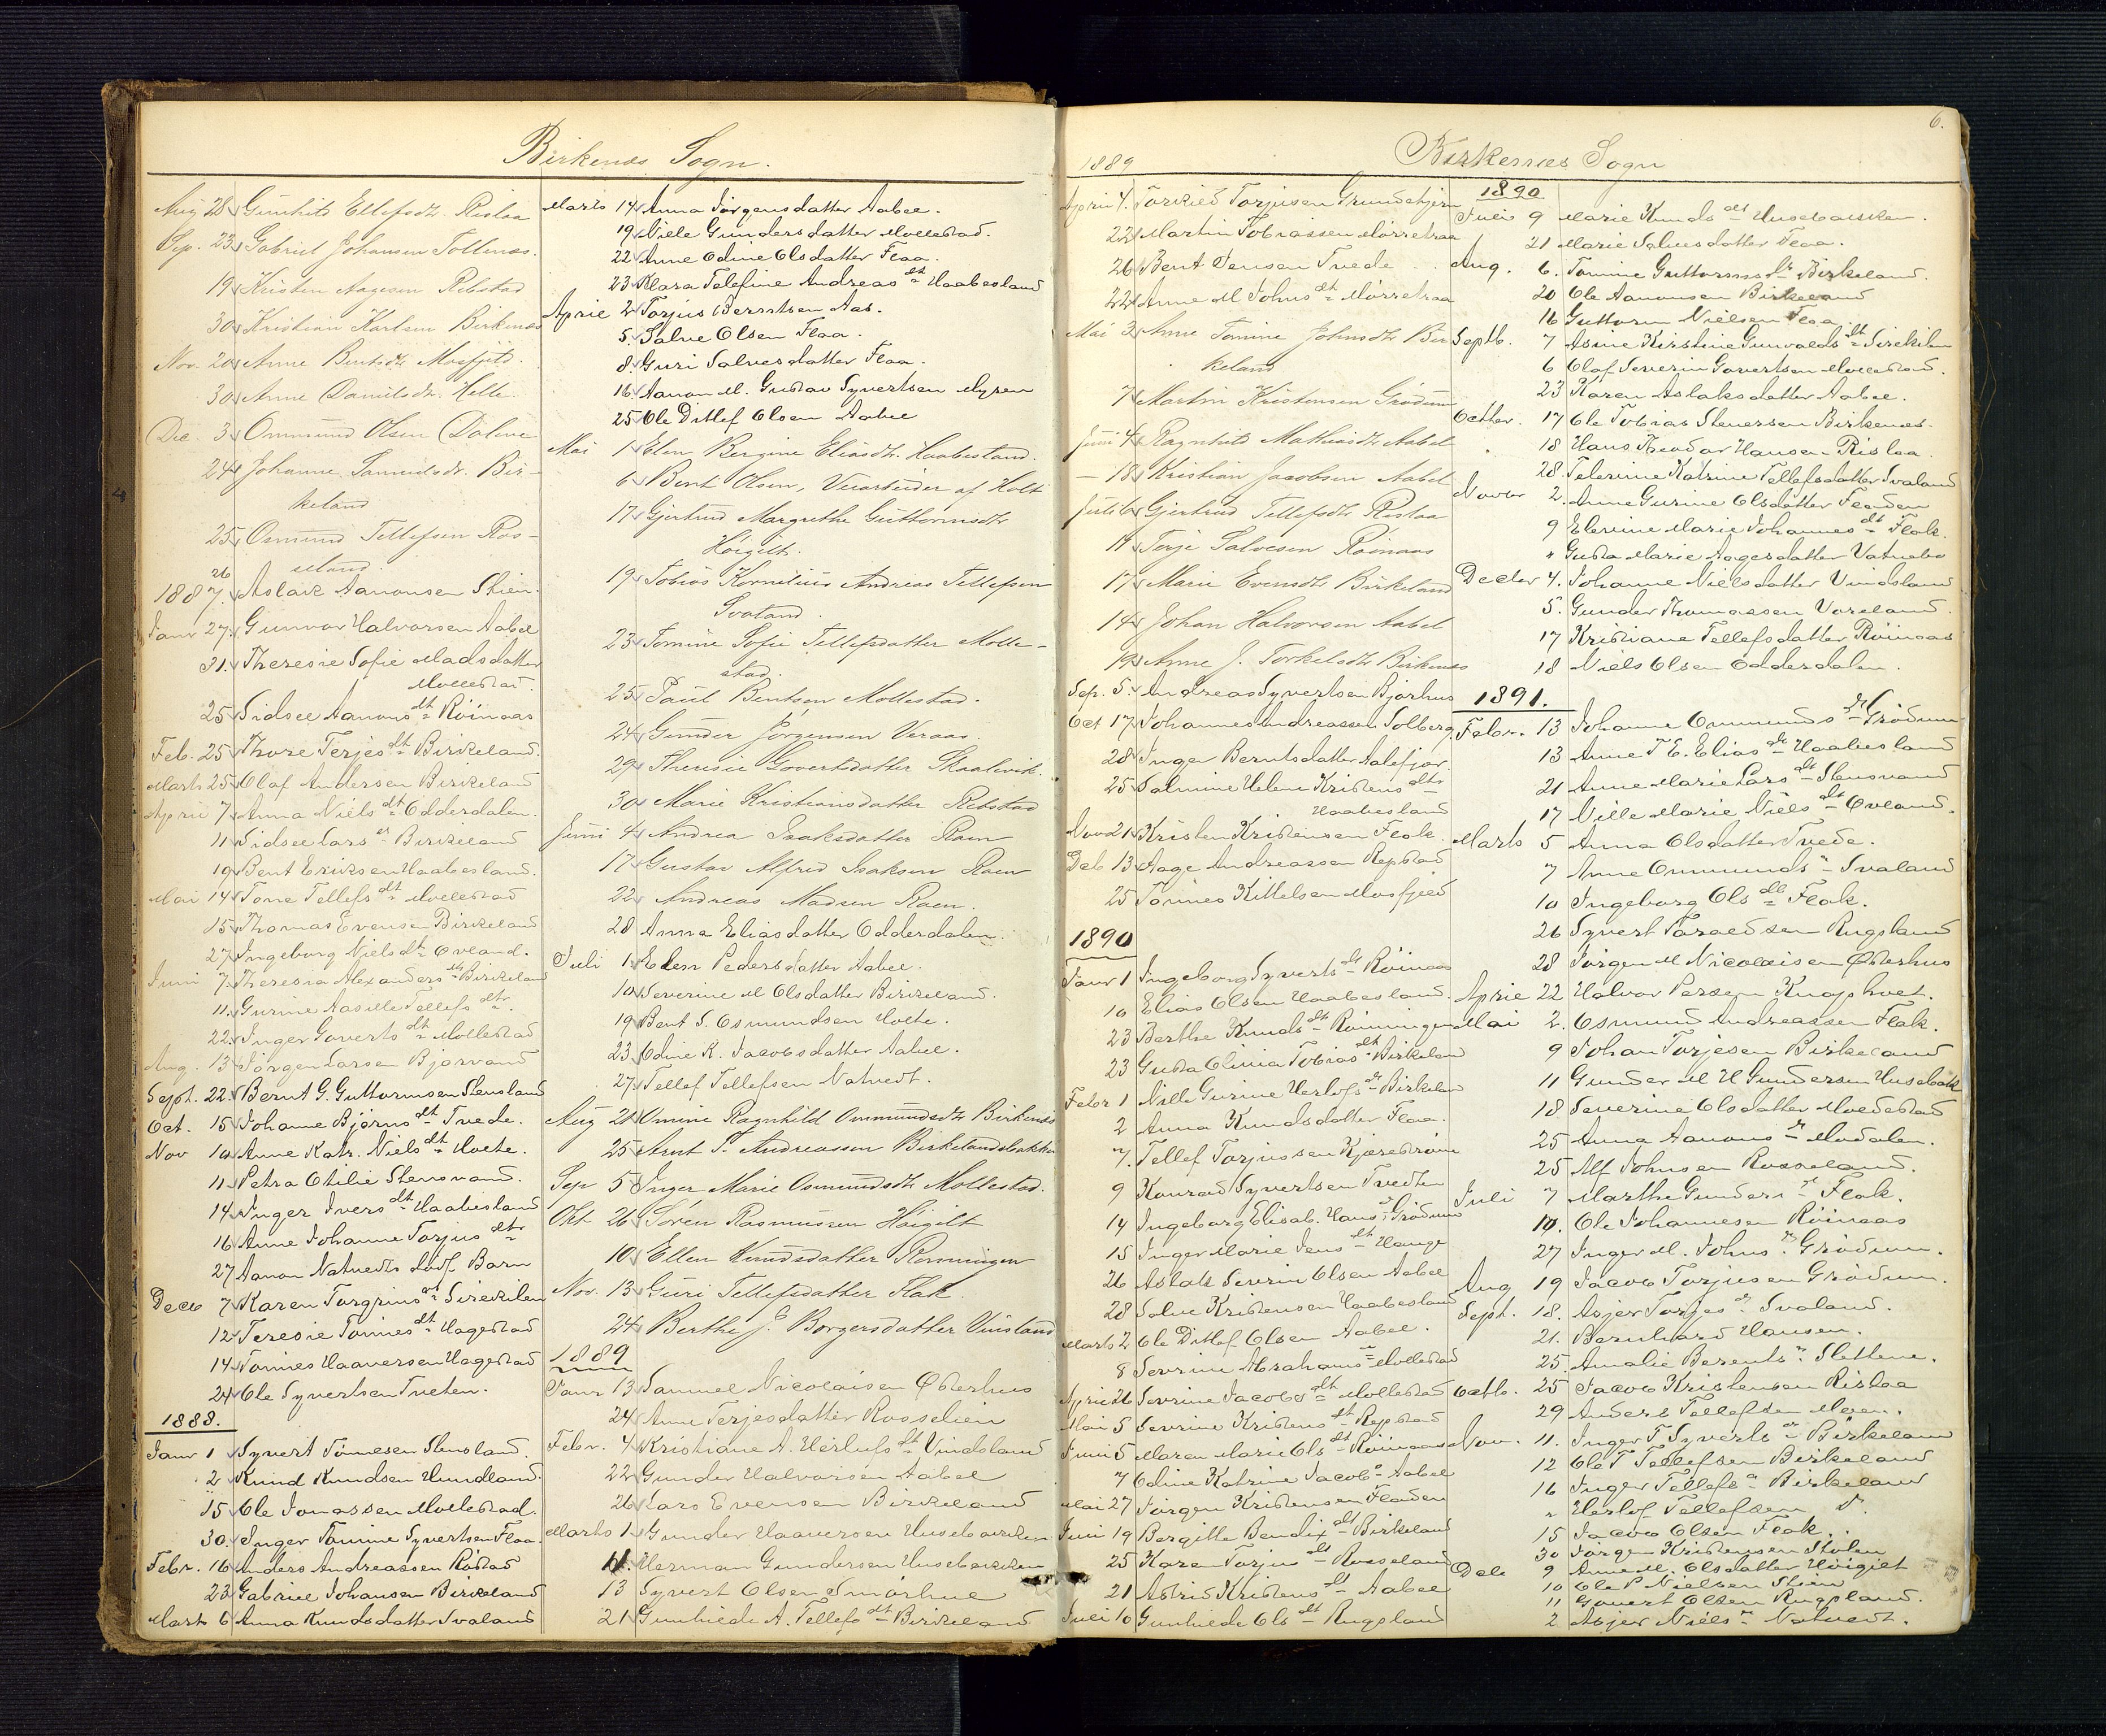 Birkenæs Sogn.
Aug 28 Gunhild Ellefsdtr. Rislaa
Sep. 23 Gabriel Johansen Tollenæs.
19 Kristen Aagesen Rebstad
30 Kristian Karlsen Birkenæs
Nov. 20 Anne Bentsdtr. Mosfjeld.
30 Anne Danielsdtr. Helle.
Dec. 3 Ommund Olsen Dalane
24 Johanne Samuelsdr. Bir-
keland
25 Osmund Tellefsen Ros-
seland.
1887. 26 Aslak Aanonsen Skien.
Janr 27. Gunvor Halvorsen Aabel
31. Theresie Sofie Madsdatter
Mollestad.
25 Sidsel Aanons dt Röinaas
Feb. 25 Thore Terjes dt Birkeland.
Marts 25 Olaf Andersen Birkeland
April 7 Anna Niels dt Odderdalen.
11 Sidsel Lars dt Birkeland
19 Bent Eriksen Haabesland.
Mai 14 Tone Tellefs dt Mollestad
15 Thomas Evensen Birkeland
27 Ingeborg Niels dt Ovland.
Juni 7. Theresia Alexanders dt Birkeland
11. Gurine Aasille Tellefs dtr.
22. Inger Goverts dt Mollestad
Aug. 13 Jörgen Larsen Bjorvand
Sept. 22. Bernt G. Guttormsen Stensland
Oct. 15 Johanne Björns dt Tvede.
Nov 10 Anne Katr. Niels dt Hvete.
11 Petra Otilie Stensvand.
14 Inger Ivers dt Haabesland
16 Anne Johanne Torjus dtr
27 Aanon Natvedts Barn
Decb 7 Karen Torgrims dt
12 Teresie Tönnes dt Hagestad
14 Tönnes Haaversen Hagestad
24 Ole Syvertsen Tveten.
1888.
Janr 1 Syvert Tönnesen Stensland.
2 Knud Knudsen Hundland.
15 Ole Jonassen Mollestad.
30. Inger Tomine Syvertsen Flaa.
Febr. 16 Anders Andreassen Röstad
23 Gabriel Johansen Birkeland
Mart 6 Anna Knudsdatter Svaland
Marts 14 Anna Jörgensdatter Aabel.
19 Nille Gundersdatter Mollestad.
22 Anne Odine Olsdatter Flaa.
23 Klara Telefine Andreas dt Haabesland
April 2 Torjus Berntsen Aas.
5. Salve Olsen Flaa.
8. Guri Salvesdatter Flaa.
16. Aanon M. Gustav Syvertsen Myren
25 Ole Ditlef Olsen Aabel
Mai 1 Elen Bergine Eliasdtr. Haabesland.
6 Bent Olsen, Veiarbeider af Holt
17 Gjertrud Margrethe Guttormsdtr
Höigilt.
19 Tobias Kornelius Andreas Tellefsen
Svaland.
23 Tomine Sofie Tellefsdatter Molle-
stad.
25 Paul Bentsen Mollestad.
24 Gunder Jörgensen Veraas.
29 Theresie Govertsdatter Skaalevik.
30 Marie Kristiansdatter Rebstad
Juni 4 Andrea Isaksdatter Raen
17 Gustav Alfred Isaksen Raen
22 Andreas Madsen Raen.
28 Anna Eliasdatter Odderdalen.
Juli 1 Elen Pedersdatter Aabel.
10 Severine M Olsdatter Birkeland.
19 Bent S. Osmundsen Hvete.
23 Odine K. Jacobsdatter Aabel.
27 Tellef Tellefsen Natvedt.
Aug 21 Omine Ragnhild Ommundsdtr Birkenæs
25 Arnt T. Andreassen Birkelandsbakken
Sep 5 Inger Marie Osmundsdtr Mollestad.
Okt 26 Sören Rasmussen Höigilt
10 Ellen Knudsdatter Rönningen
Nov. 13 Guri Tellefsdatter Flak.
24 Berthe J. Borgersdatter Vinsland
1889
Janr 13 Samuel Nicolaisen Østerhus
24 Anne Terjesdatter Rosselien
Febr. 4 Kristiane A. Herlufs dt Vindsland
22 Gunder Halvorsen Aabel
26 Lars Evensen Birkeland
Marts 1 Gunder Haaversen Husebakken
11. Herman Gundersen Husebakken
13 Syvert Olsen Smörhue
21 Gunhilde A. Tellefs dt Birkeland
6.
Birkenæs Sogn
1889
April 4. Torkild Torjusen Grundetjern
22 Martin Tobiassen Mörretraa
26 Bent Jensen Tvede
22 Anne M Johns dt Mörretraa
Mai 3 Anne Tomine Johnsdtr Bir
keland
7 Martin Kristensen Grödum
Juni 4 Ragnhild Mathiasdtr Aabel
18 Kristian Jacobsen Aabel
Juli 6 Gjertrud Tellefsdtr Rislaa
11 Terje Salvesen Röinaas
17 Marie Evensdtr Birkeland
14 Johan Halvorsen Aabel
19 Anne J. Torkelsdtr Birkenæs
Sep. 5. Andreas Syvertsen Bjorhus
Oct 17. Johannes Andreassen Solberg
28 Inger Berntsdatter Aalefjær.
25 Salmine Helene Kristens dtr
Haabesland
Nov 21 Kristen Kristensen Flak.
Deb 13 Aage Andreassen Repstad
25 Tönnes Kittelsen Mosfjeld
1890
Janr 1 Ingeborg Syverts dt Röinaas
10 Elias Olsen Haabesland.
23 Berthe Knuds dt Rönningen
23 Gusta Olivia Tobias dt Birkeland
Febr 1 Nille Gurine Herlofs dt Birkeland
2 Anna Knudsdatter Flaa.
7. Tellef Torjussen Kjærestrøm
9 Konrad Syvertsen Tvedten
14 Ingeborg Elisab. Hans dt Grödum
15 Inger Marie Jens dt Hauge
26 Aslak Severin Olsen Aabel
28 Salve Kristensen Haabesland
Marts 2 Ole Ditlef Olsen Aabel.
8 Sevrine Abrahams dt Mollestad
April 26 Sevrine Jacobs dt Mollestad
Mai 5 Sevrine Kristens dt Repstad
Juni 5 Maren Marie Ols dt Röinaas
7 Odine Katrine Jacobs Aabel
Mai 27 Jörgen Kristensen Flaaden
Juni 19 Bergitte Bendix dt Birkeland
25 Karen Torjus dt Rosseland
21 Astrid Kristens dt Aabel
Juli 10 Gunhilde Ols dt Rugsland
1890
Juli 9 Marie Knuds dt Husebakken.
21 Marie Salvesdatter Flaa.
Aug. 6. Tomine Guttorms dt Birkeland.
20 Ole Aanonsen Birkeland
16 Guttorm Nielsen Flaa
Septb. 7 Asine Kirstine Gunvalds dt
6 Olaf Severin Govertsen Mollestad.
23 Karen Aslaksdatter Aabel.
Octbr. 17 Ole Tobias Stenersen Birkenæs.
18 Hans Theodor Hansen Rislaa.
28 Telerine Katrine Tellefsdatter Svaland
Novbr 2. Anne Gurine Olsdatter Flaaden
9 Elevine Marie Johannes dt Flak.
" Gusta Marie Aagesdatter Vatnebo
Decbr 4. Johanne Nielsdatter Vindsland
5. Gunder Thomassen Vareland.
17 Kristiane Tellefsdatter Röinaas
18 Niels Olsen Odderdalen.
1891.
Febr. 13 Johanne Ommunds dt Grödum
13 Anne T. E. Elias dt Haabesland
21 Anne Marie Lars dt Stensvand
17 Nille Marie Niels dt Ovland.
Marts 5 Anna Olsdatter Tvede.
7 Anne Ommunds " Svaland
10 Ingeborg Ols dt Flak.
26 Syvert Taraldsen Rugsland
28 Jörgen M Nicolaisen Østerhus
April 22 Halvor Persen Knapholt.
Mai 2. Osmund Andreassen Flak.
9 Johan Torjesen Birkeland
11 Gunder M H Gundersen Husebakk
18 Severine Olsdatter Mollestad
25 Anna Aanons dt Modalen.
25 Alf Johnsen Rosseland.
Juli 7 Marthe Gunders dt Flak.
10. Ole Johannesen Röinaas
27 Inger M. Johns dt Grödum.
Aug 19 Jacob Torjusen Grödum.
Sept. 18. Asjer Torjes dt Svaland.
21. Bernhard Hansen.
25. Amalie Berents dt Slettene.
Octb. 25 Jacob Kristensen Rislaa
29 Anders Tellefsen
Nov. 11. Inger T Syverts dt Birkeland
12 Ole T Tellefsen Birkeland
16 Inger Tellefs dt Birkeland
" Herlof Tellefsen
15 Jacob Olsen Flak.
30 Jörgen Kristensen Stolen
Decb 9 Anne M. Olsdatter Höigilt
10 Ole P Nielsen Skien
11 Govert Olsen Rugsland.
2 Asjer Niels dt Natvedt.